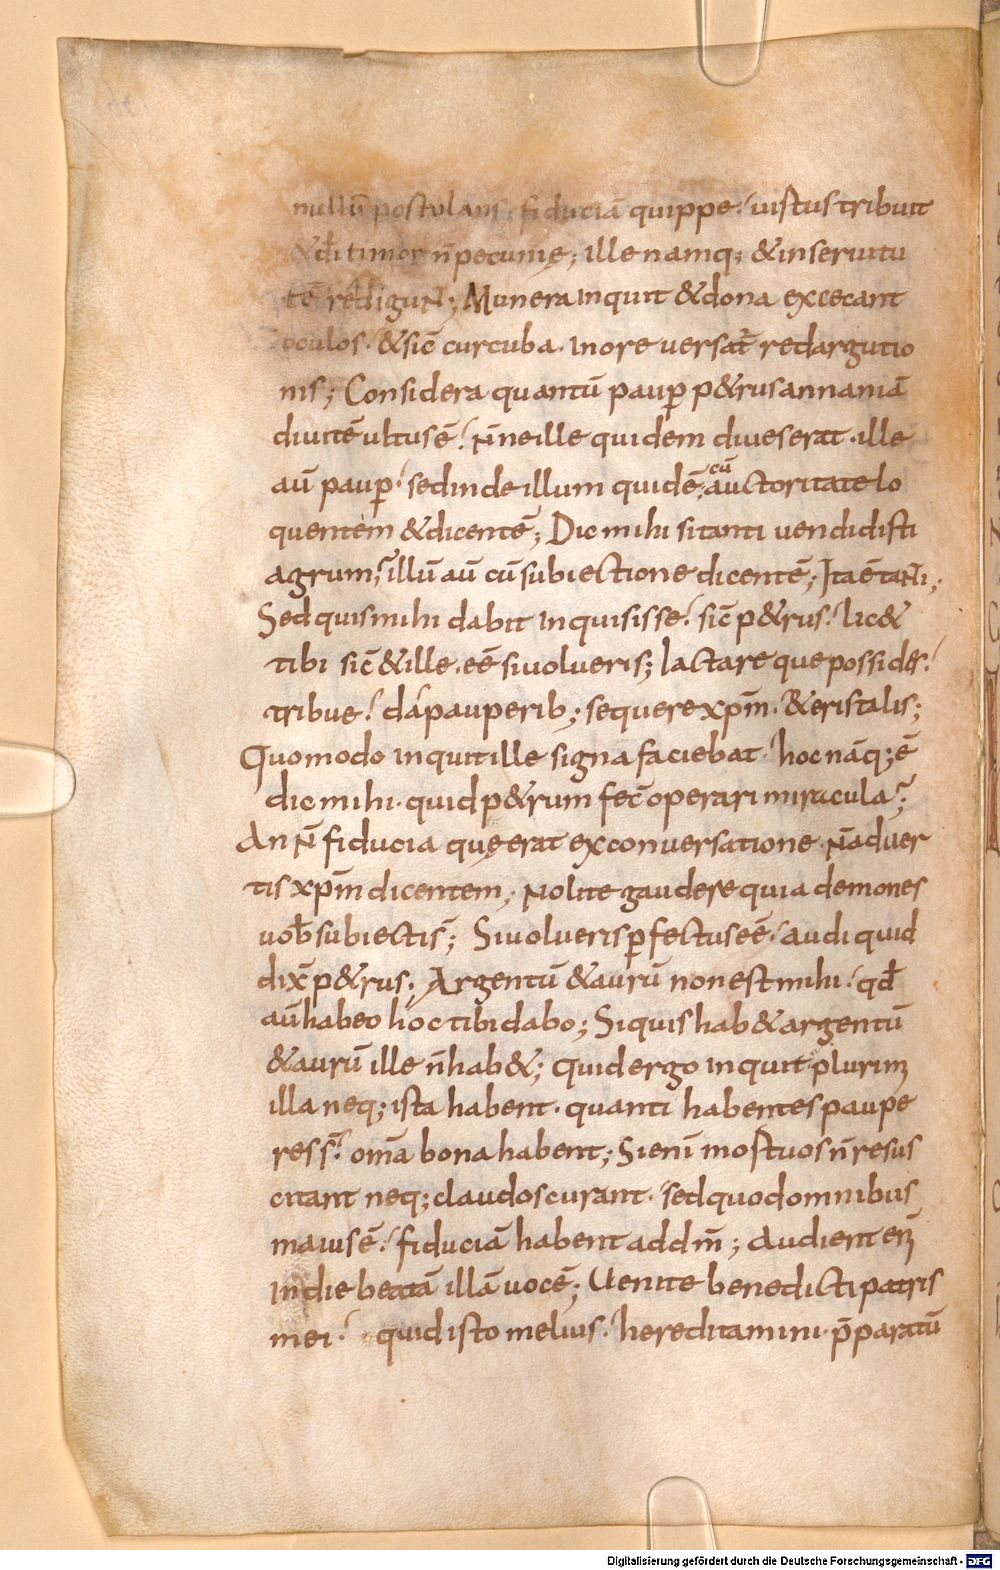 nullū postulans. fiduciā quippe uistus tribuit
& dī timor n̄ pecunię; ille namq; & inseruitu
tē redigunt; Munera inquit & dona excecant
oculos. & sic̄ curcuba. In ore uersat̄ redargutio
nis; Considera quantū paup p&rus annaniā
diuitē ultus ē! N̄ne ille quidem diues erat. ille
aū paup. sed inde illum quidē cū auctoritate lo
quentem & dicentē; Dic mihi si tanti uendidisti
agrum? illū aū cū subiectione dicentē; Ita ē tanti;
Sed quis mihi dabit inquis isse! sic̄ p&rus! lic&
tibi sic̄ & ille. eē si uolueris; Iactare que possides!
tribue! da pauperib; sequere xp̄m. & eris talis;
Quomodo inquit ille signa faciebat. hoc nāq; ē
dic mihi. quid p&rum fec̄ operari miracula?
An n̄ fiducia quę erat ex conuersatione. N̄ aduer
tis xp̄m dicentem, Nolite gaudere quia demones
uob̄ subiecti s̄; Si uolueris pfectus eē. audi quid
dix̄ p&rus; Argentū & aurū non est mihi! qd̄
aū habeo hoc tibi dabo; Si quis hab& argentū
& aurū ille n̄ hab&; Quid ergo inquit plurim̄
illa neq; ista habent. quanti habentes paupe
res s̄! om̄a bona habent; Si enī mostuos n̄ resus
citant neq; claudos curant. sed quod omnibus
maius ē! fiduciā habent ad dm̄; Audient en̄
in die beatā illā uocē; Uenite benedicti patris
mei! quid isto melius! hereditamini p̄paratū
Digitalisierung gefördert durch die Deutsche Forschungsgemeinschaft - DFG